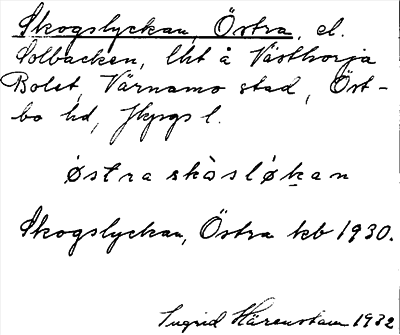 Skogslyckan, Östra, el.
Solbacken, lht å Västhorja
Bolet, Värnamo stad, Öst-
bo hd, Jkpgs l.
østra skòsløkan
Skogslyckan, Östra kb 1930.
Ingrid Härenstam 1932